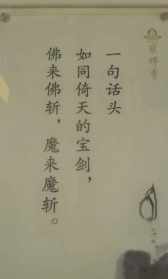 一句话头
如同倚天的宝剑，
佛来佛斩，魔来魔斩。